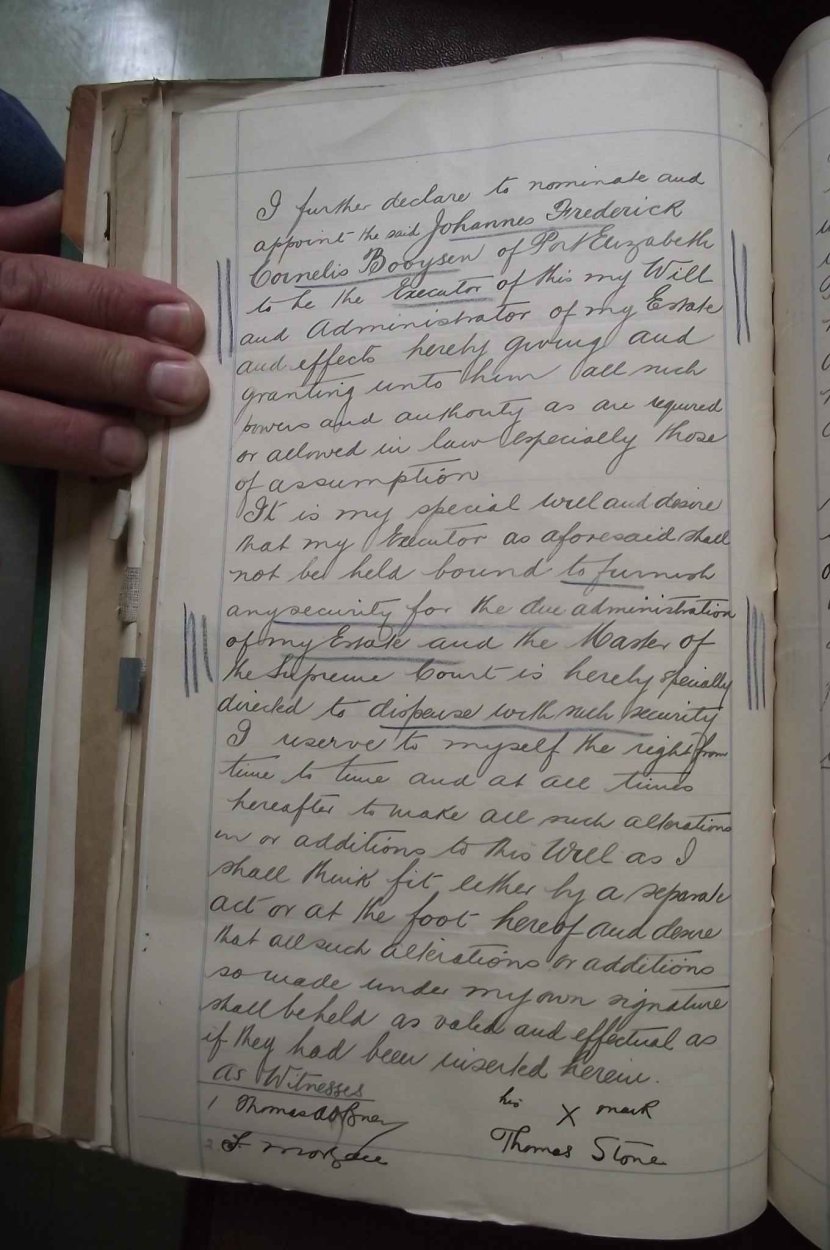 I further declare to nominate and
appoint the said Johannes Frederick
Cornelis Booysen of Port Elizabeth
to be the Executor of this my Will
and Administrator of my Estate
and effects hereby giving and
granting unto him all such
powers and authority as are required
or allowed in law especially those
of assumption
It is my special will and desire
that my Executor as aforesaid shall
not be held bound to furnish
any security for the due administration
of my Estate and the Master of
the Supreme Court is hereby specially
directed to dispense with such security
I reserve to myself the right from
time to time and at all times
hereafter to make all such alterations
in or additions to this Will as I
shall think fit either by a separate
act or at the foot hereof and desire
that all such alterations or additions
so made under my own signature
shall be held as valid and effectual as
if they had been inserted herein.
As Witnesses
his X mark
1 Thomas
Thomas Stone
2